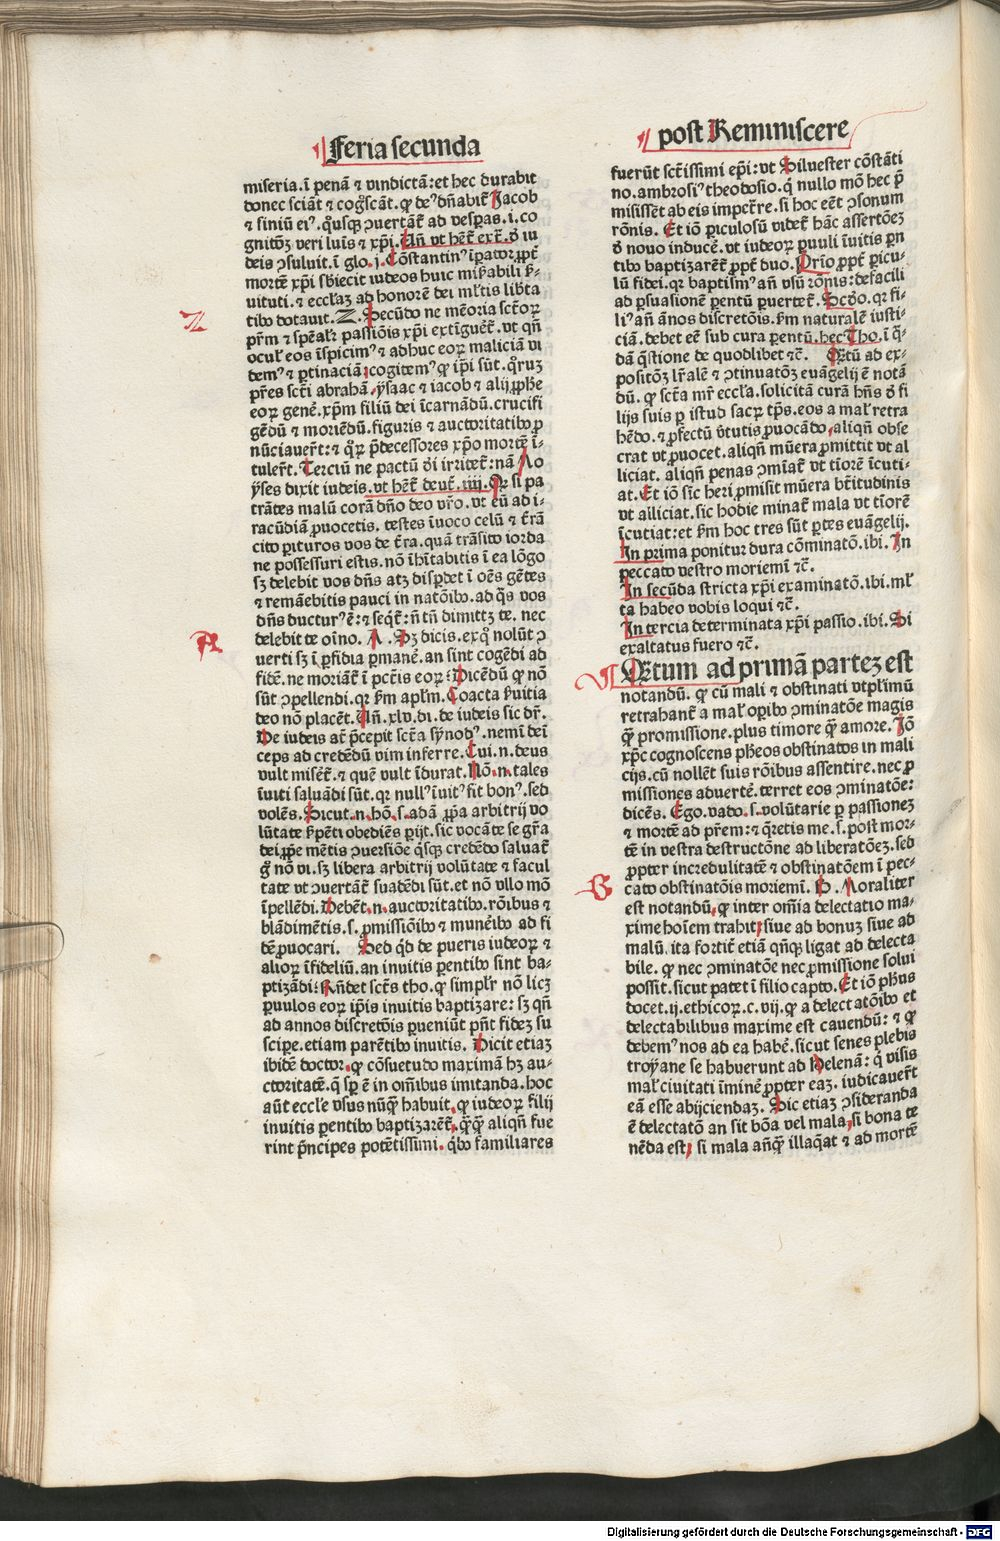 Feria secunda
miseria.ī penā ⁊ vindictā:et hec durabit
donec sciāt ⁊ cogscāt.ꝙ deꝰ dn̄abit̄ Jacob
⁊ finiū eiꝰ.qͦusqꝫ ꝯuertāt̄ ad vesꝑas.i.co
gnitōꝫ veri luīs ⁊ xp̄i.Añ vt hēt̄ ext̄.ð iu
deis ꝯsuluit.ī glo.j. Cōstantinꝰ īꝑator ꝓpt̄
mortē xp̄i sb̄iecit iudeos huic mi%abili ẜ-
uituti.⁊ eccl̄aꝫ ad honorē dei ml̄tis lib̄ta
tibꝰ dotauit.Z. Secūdo ne mēoria sct̄oꝝ
pr̄m ⁊ sp̄eal'r passiōis xp̄i extīguēt̄.vt qn̄
oculꝰ eos īspicimꝰ ⁊ adhuc eoꝝ maliciā vi
demꝰ ⁊ ꝑtinaciā:cogitemꝰ ꝙ ip̄i sūt.qͦruꝫ
pr̄es sct̄i abrahā.ysaac ⁊ iacob ⁊ alij ꝓph̄e
eoꝝ gene.xp̄m filiū dei īcarnādū.crucifi
gēdū ⁊ moriēdū.figuris ⁊ auctoritatibꝰ ꝓ
nūciauer̄t:⁊ qͦꝝ p̄decessores xp̄o mortē ī-
tuler̄t. Terciū ne pactū dei irritet̄:nā Mo
yses dixit iudeis.vt hēt̄ deut̄.iiij. Qr si pa
trātes malū corā dn̄o deo vr̄o.vt eū ad i-
racūdiā ꝓuocetis. testes īuoco celū ⁊ t̄rā
cito ꝑituros vos de t̄ra.quā trāsito iorda
ne possessuri estis.nō īhītabitis ī ea lōgo
sꝫ delebit vos dn̄s atꝫ disꝑdet ī oēs gētes
⁊ remāebitis pauci in natōibꝰ.ad qͣs vos
dn̄s ducturꝰ ē:⁊ seqt̄:n̄ tn̄ dimittꝫ te. nec
delebit te oīno. A . Sꝫ dicis.exqͦ nolūt ꝯ
uerti sꝫ ī ꝑfidia ꝑmanē.an sint cogēdi ad
fidē.ne moriāt̄ ī pct̄is eoꝝ: Dicēdū ꝙ nō
sūt ꝯpellendi.qr ẜm apl̄m. Coacta ẜuitia
deo nō placēt. Añ.xlv.di.de iudeis sic dr̄.
De iudeis at̄ p̄cepit sct̄a synodꝰ.nemī deī
ceps ad credēdū vim inferre. Cui.n.deus
vult misēt̄.⁊ quē vult īdurat. Nō.n.tales
īuiti saluādi sūt.qr nullꝰ īuitꝰ fit bonꝰ.sed
volēs. Sicut.n.hō.s.adā ꝓpͥa arbitrij vo
lūtate ẜpēti obediēs ꝑijt.sic vocāte se gr̄a
dei ꝓpͥe mētis ꝯuersiōe qͥsqꝫ credēdo saluat̄
gͦ nō vi.sꝫ libera arbitrij volūtate ⁊ facul
tate vt ꝯuertāt̄ suadēdi sūt.et nō vllo mō
īpellēdi. Debēt.n.auctoritatibꝰ.rōibus ⁊
blādimētis.s.ꝓmissiōibꝰ ⁊ munēibꝰ ad fi
dē ꝓuocari. Sed qͥd de pueris iudeoꝝ ⁊
alioꝝ īfideliū.an inuitis ꝑentibꝰ sint ba-
ptizādi: Rn̄det sct̄s tho.ꝙ simpl'r nō licꝫ
ꝑuulos eoꝝ ip̄is inuitis baptizare: sꝫ qn̄
ad annos discretōis ꝑueniūt pn̄t fideꝫ su
scipe.etiam parētibꝰ inuitis. Dicit etiaꝫ
ibidē doctor.ꝙ cōsuetudo maximā hꝫ au-
ctoritatē.q̄ sꝑ ē in om̄ibus imitanda.hoc
aūt eccl'ie vsus nūqͣ habuit.ꝙ iudeoꝝ filij
inuitis ꝑentibꝰ baptizarēt̄.qͣꝫqͣꝫ aliqn̄ fue
rint pͥncipes potētissimi.qͥbꝰ familiares
post Reminiscere
fuerūt sct̄issimi ep̄i:vt Siluester cōstāti
no.ambrosiꝰ theodosio.qͥ nullo mō hec p̄
misissēt ab eis impet̄re.si hoc eēt ꝯsonum
rōnis. Et iō ꝑiculosū videt̄ hāc assertōeꝫ
ð nouo inducē.vt iudeoꝝ ꝑuuli īuitis ꝑn
tibꝰ baptizarēt̄ ꝓpt̄ duo. Prīo ꝓpt̄ ꝑicu-
lū fidei.qr baptismꝰ an̄ vsū rōnis:defacili
ad ꝑsuasionē ꝑentū ꝑuertet̄. Scðo.qr fi-
liꝰ an̄ ānos discretōis.ẜm naturalē iusti-
ciā.debet eē sub cura ꝑentū.hec Tho.ī qͣ-
dā qͣstione de quodlibet ⁊c̄. Qētū ad ex-
positōꝫ lr̄alē ⁊ ꝯtinuatōꝫ euāgelij ē notā
dū.ꝙ sct̄a mr̄ eccl'a.solicitā curā hn̄s ð fi
lijs suis ꝑ istud sacꝝ tp̄s.eos a mal' retra
hēdo.⁊ ꝓfectū v̄tutis ꝓuocādo.aliqn̄ obse
crat vt ꝓuocet.aliqn̄ mūera ꝓmittit vt al
liciat. aliqn̄ penas ꝯmīat̄ vt tīorē īcuti-
at. Et iō sic heri ꝓmisit mūera btītudinis
vt alliciat.sic hodie minat̄ mala vt tīorē
īcutiat:et ẜm hoc tres sūt ꝑtes euāgelij.
In prima ponitur dura cōminatō.ibi. In
peccato vestro moriemī ⁊c̄.
In secūda stricta xp̄i examinatō.ibi.ml'
ta habeo vobis loqui ⁊c̄.
In tercia determinata xp̄i passio.ibi. Si
exaltatus fuero ⁊c̄.
Qētum ad primā parteꝫ est
notandū.ꝙ cū mali ⁊ obstinati vtpl'imū
retrahant̄ a mal' oꝑibꝰ ꝯminatōe magis
qͣꝫ promissione.plus timore qͣꝫ amore. Jō
xp̄c cognoscens ph̄eos obstinatos in mali
cijs.cū nollēt suis rōibus assentire.nec ꝓ
missiones aduertē.terret eos ꝯminatōe:
dicēs. Ego.vado.s.volūtarie ꝑ passioneꝫ
⁊ mortē ad pr̄em:⁊ qͣretis me.s.post mor-
tē in vestra destructōne ad liberatōeꝫ.sed
ꝓpter incredulitatē ⁊ obstinatōem ī pec-
cato obstinatōis moriemī. B . Moraliter
est notandū.ꝙ inter om̄ia delectatio ma-
xime hoīem trahit.siue ad bonuꝫ siue ad
malū.ita fortit̄ etiā qn̄qꝫ ligat ad delecta
bile.ꝙ nec ꝯminatōe nec ꝓmissione solui
possit.sicut patet ī filio capto. Et iō ph̄us
docet.ij.ethicoꝝ.c.vij.ꝙ a delectatōibꝰ et
delectabilibus maxime est cauendū: ⁊ ꝙ
debemꝰ nos ad ea habē.sicut senes plebis
troyane se habuerunt ad Helenā: qͥ visis
mal' ciuitati īminē ꝓpter eaꝫ.iudicauer̄t
eā esse abijciendaꝫ. Sic etiaꝫ ꝯsideranda
ē delectatō an sit bōa vel mala.si bona te
nēda est: si mala an̄qͣꝫ illaqͣat ⁊ ad mortē
Z
A
B
Digitalisierung gefördert durch die Deutsche Forschungsgemeinschaft - DFG